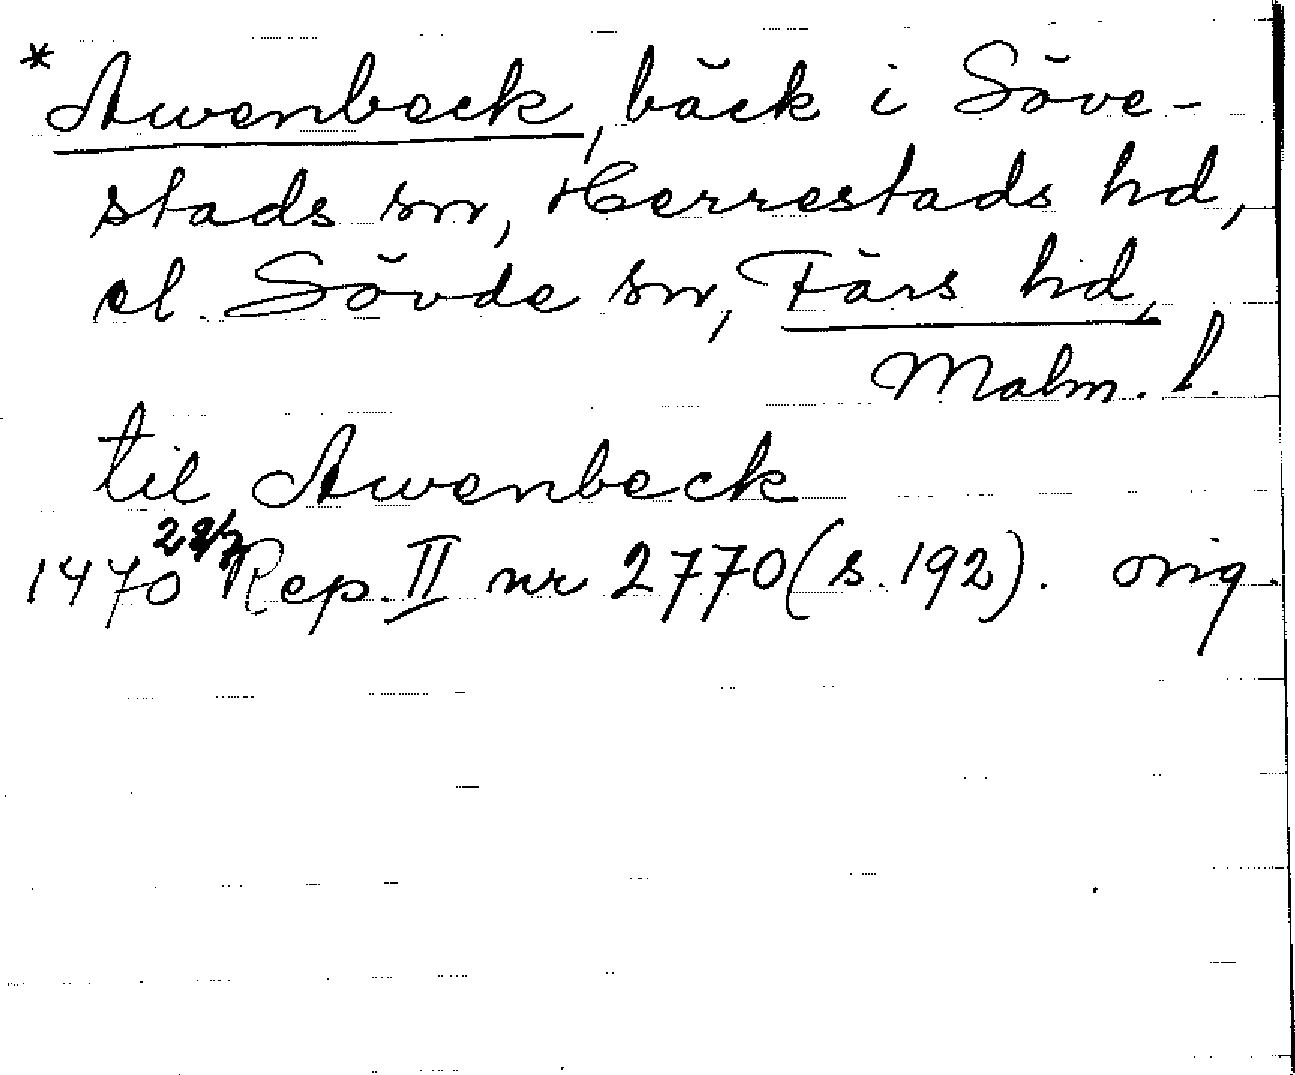 * Awenbeck, bäck i Söve-
stads sn, Herrestads hd,
el. Sövde sn, Färs hd,
Malm. l.
til Awenbeck
1470 Rep. II nr 2770 (s. 192). orig.